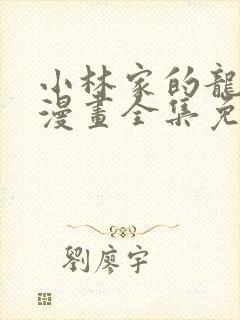 小林家的龍
漫畫全集免
劉廖宇